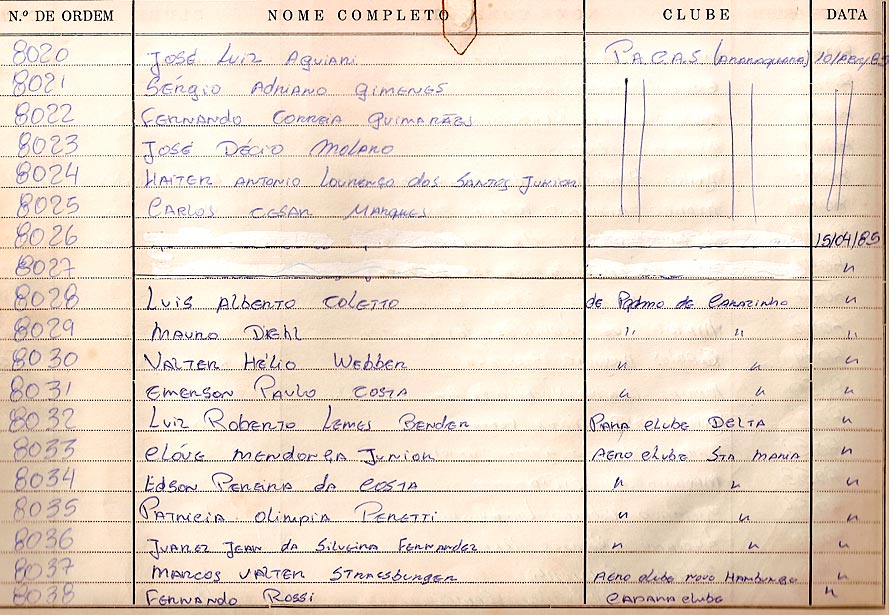 N.º DE ORDEM NOME COMPLETO CLUBE DATA
8020 José Luiz Aguiari P.A.C.A.S (Araraquara) 10/Abr/85
8021 Sérgio Adriano Gimenes
8022 Fernando Correia Guimarães
8023 José Décio Molaro
8024 Haiter Antonio Lourenço dos Santos Junior
8025 Carlos Cesar Marques
8026 15/04/85
8027 "
8028 Luis Alberto Coletto de Pqdmo de Carazinho "
8029 Mauro Diehl " " "
8030 Valter Hélio Webber " " "
8031 Emerson Paulo Costa " " "
8032 Luiz Roberto Lemes Bender Para Clube Delta "
8033 Clóve Mendonça Junior Aero Clube Sta Maria "
8034 Edson Pereira da Costa " " "
8035 Patricia Olimpia Peretti " " "
8036 Juarez Jean da Silveira Fernandez " " "
8037 Marcos Valter Strassburger Aero Clube Novo Hamburgo "
8038 Fernando Rossi "